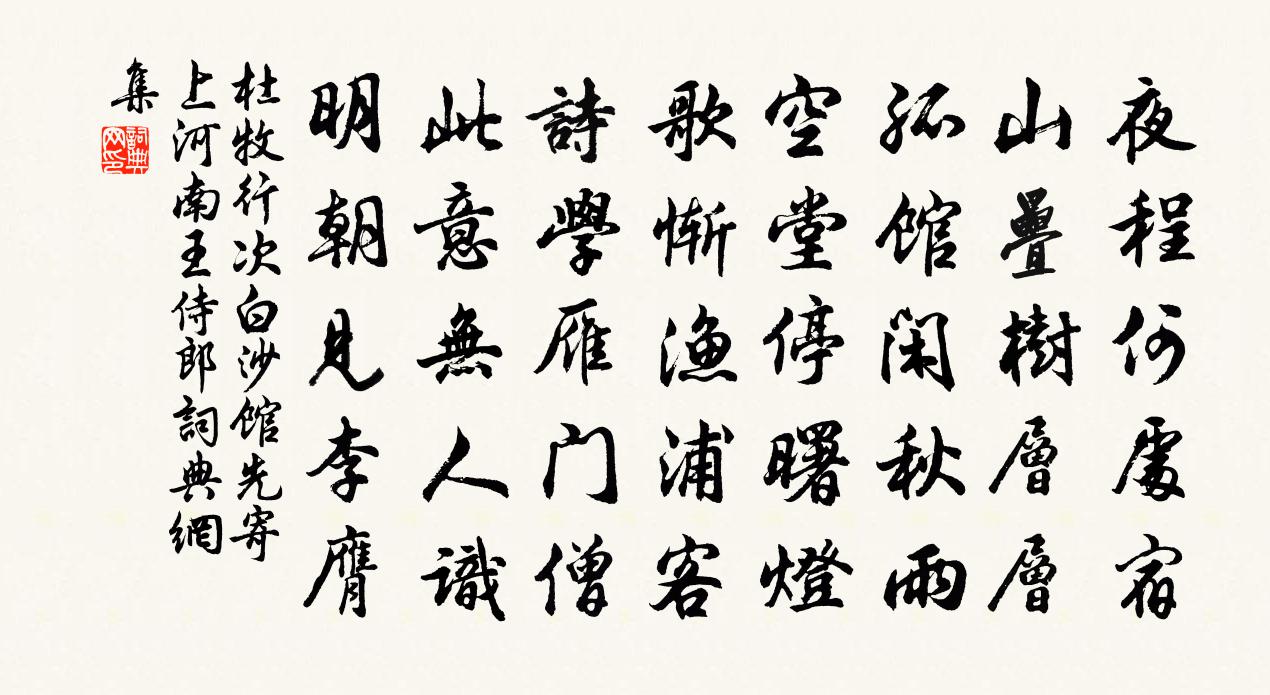 夜程何處宿
山疊樹層層
孤館閑秋雨
空堂停曙燈
歌慚漁浦客
詩學雁门僧
此意無人識
明朝見李膺
杜牧行次白沙館先寄
上河南王侍郎詞典網
集
詞典網印